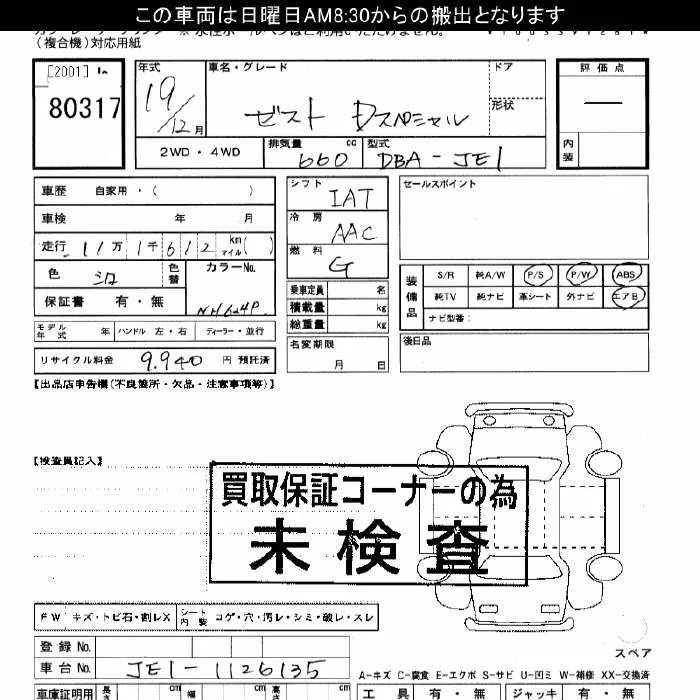 この車両は日曜日AM8:30からの搬出となります
(複合機)対応用紙
[2001]
80317
年式 19/12月
車名・グレード ゼスト Dスペシャル
ドア
形状
評価点 —
内装
2WD・4WD
排気量 660 cc
型式 DBA-JE1
車歴 自家用・( )
車検 年 月
走行 11万1千612 km マイル( )
色 シロ 色替
カラーNo. NH624P
保証書 有・無
モデル年式 年 ハンドル 左・右 ディーラー・並行
リサイクル料金 9,940 円 預託済
シフト IAT
冷房 AAC
燃料 G
乗車定員 名
積載量 kg
総重量 kg
名変期限 月 日
セールスポイント
装備品
S/R 純A/W P/S P/W ABS
純TV 純ナビ 革シート 外ナビ エアB
ナビ型番:
後日品
【出品店申告欄(不良箇所・欠品・注意事項等)】
【検査員記入】
買取保証コーナーの為
未検査
FW キズ・トビ石・割レX
シート内装 コゲ・穴・汚レ・シミ・破レ・スレ
登録No.
車台No. JE1-1126135
車庫証明用 長さ cm 幅 cm 高さ cm
スペア
A-キズ C-腐食 E-エクボ S-サビ U-凹ミ W-補修 XX-交換済
工具 有・無 ジャッキ 有・無